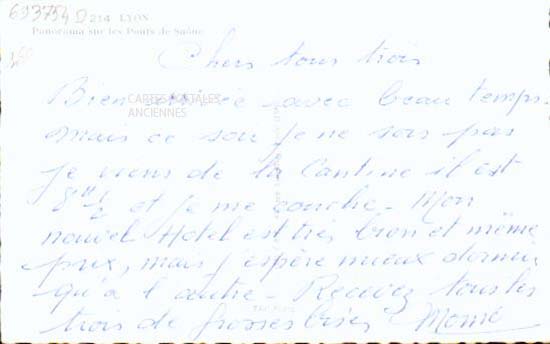 693754
214 LYON
Panorama sur les Ponts de Saône
Chers tous trois
Bien arrivée avec beau temps
CARTES POSTALES
ANCIENNES
mais ce soir je ne sors pas
je viens de la Cantine il est
8 H 1/2 et je me couche - Mon
nouvel Hotel est très bon et même
prix, mais j'espère mieux dormir
qu'à l'autre - Recevez tous les
trois de grosses bises Mémé